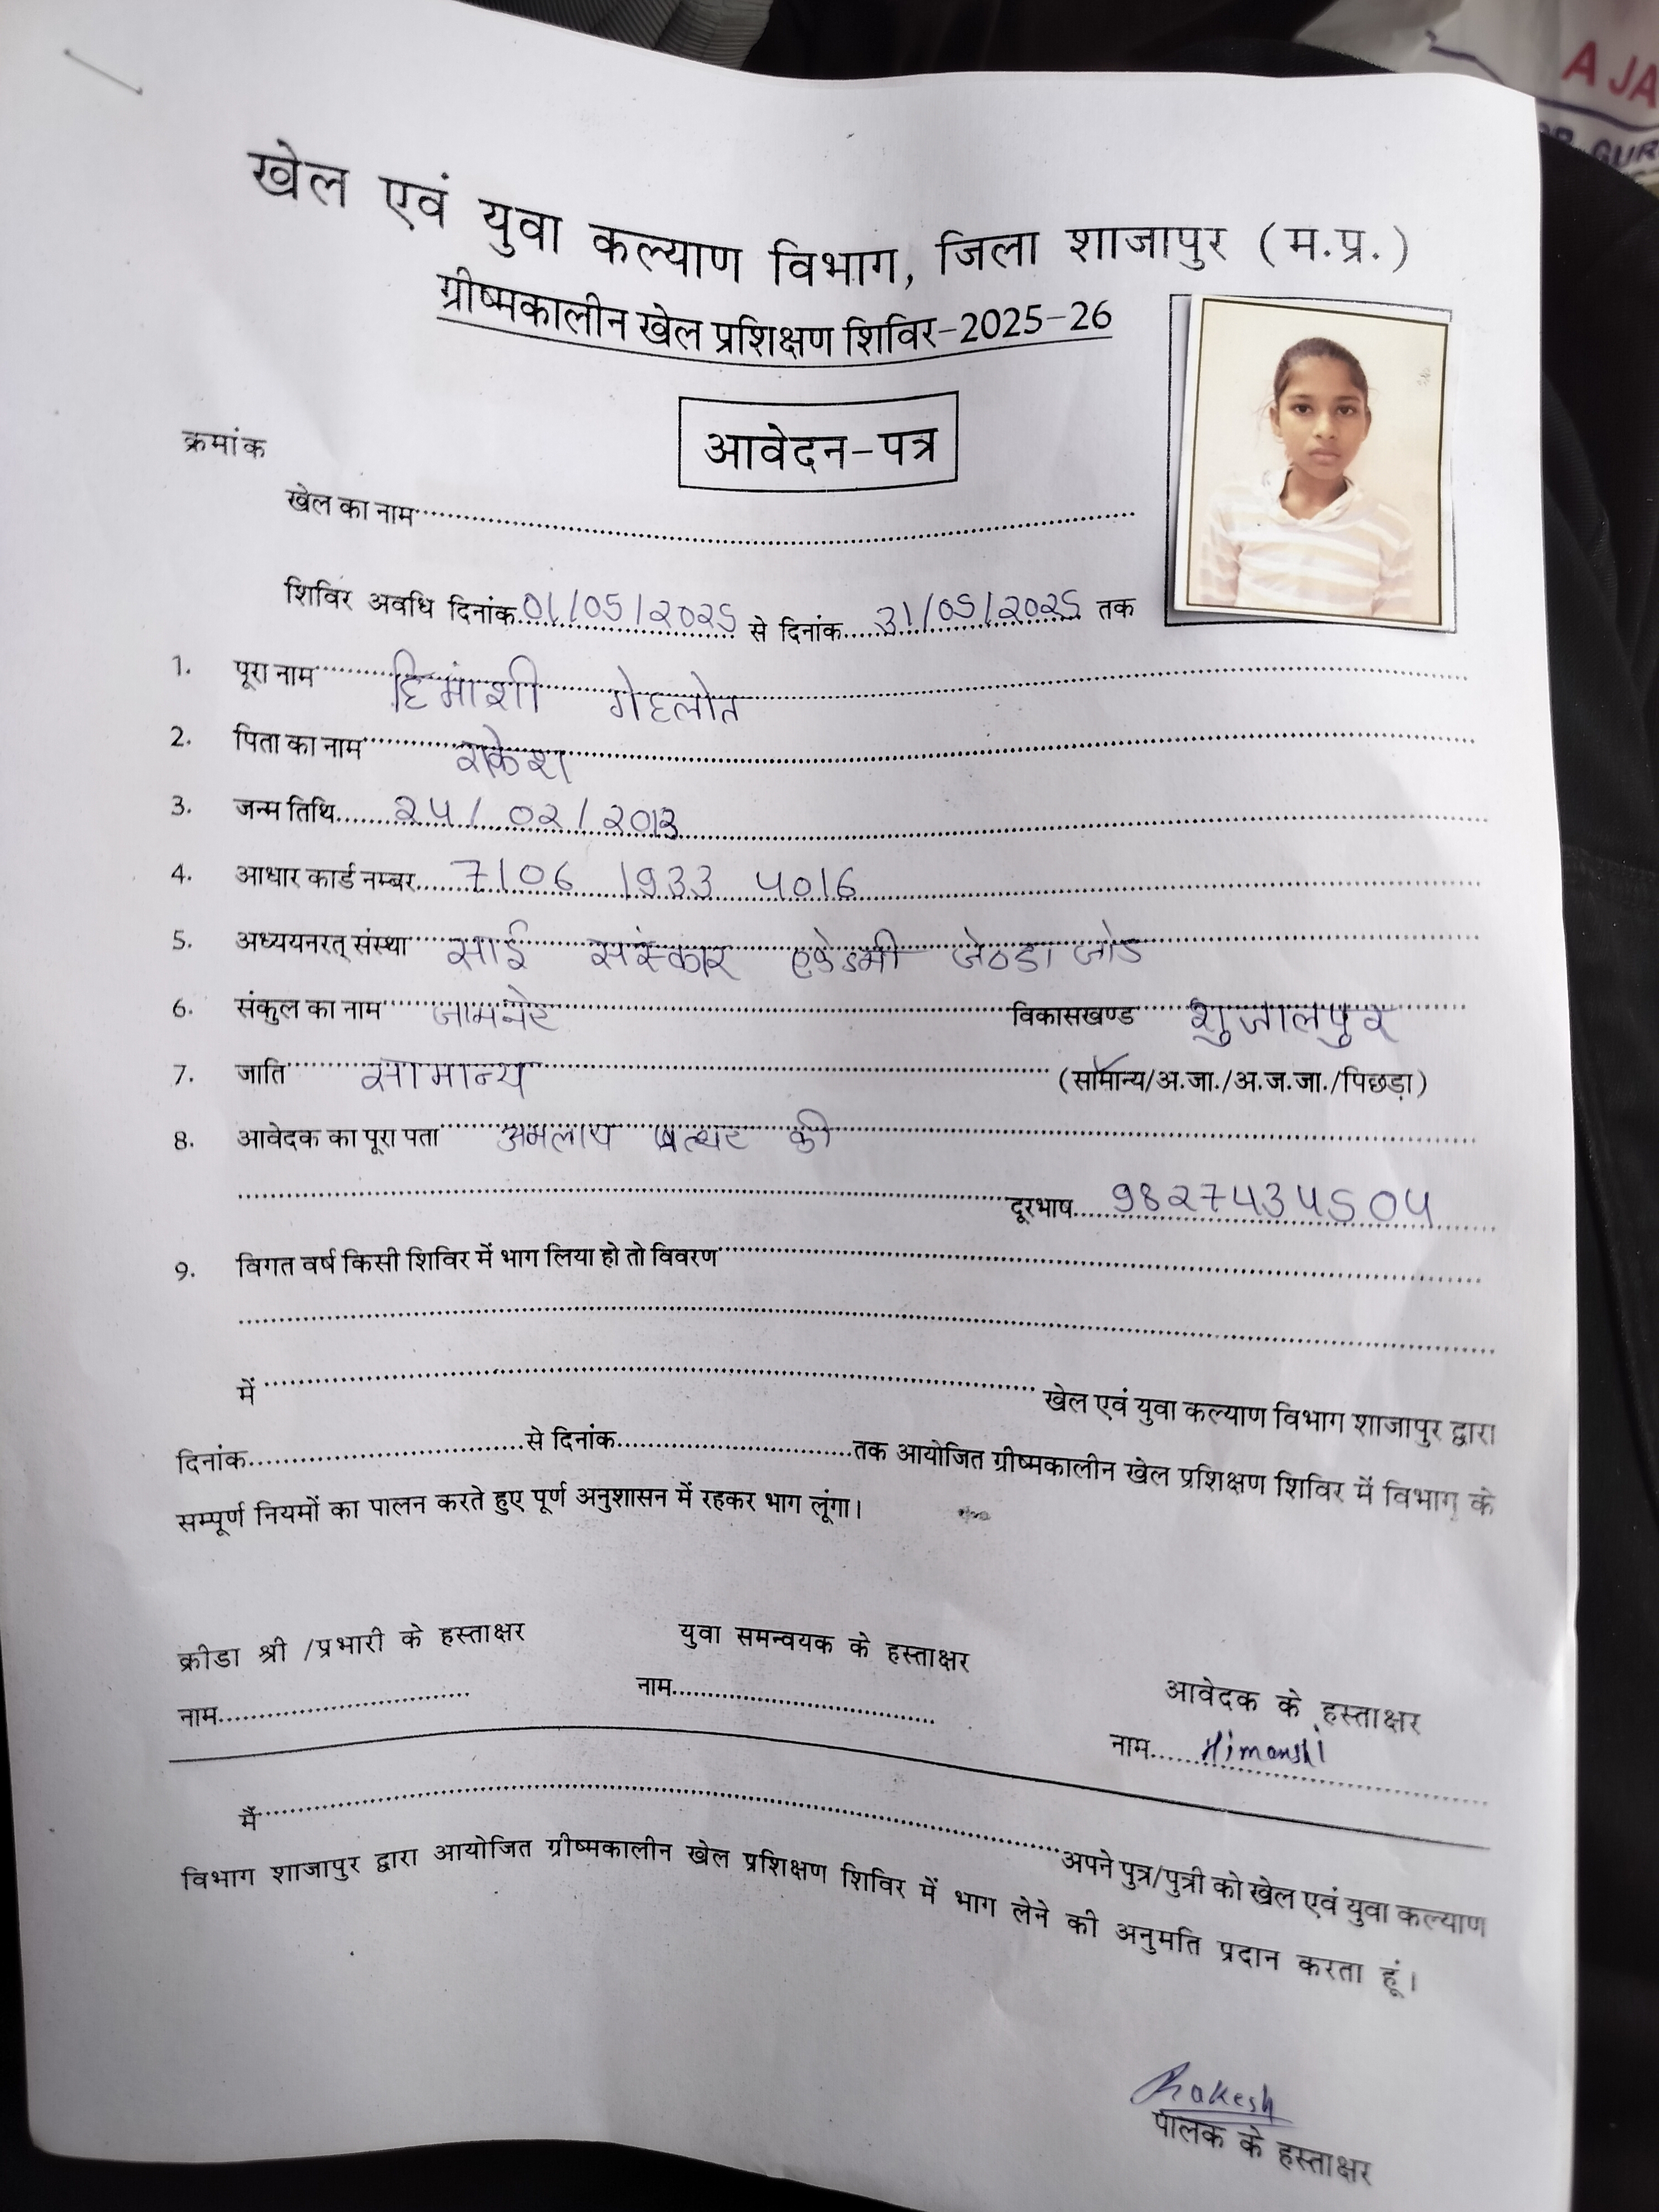 A JA
GUR
खेल एवं युवा कल्याण विभाग, जिला शाजापुर (म.प्र.)
ग्रीष्मकालीन खेल प्रशिक्षण शिविर-2025-26
क्रमांक
आवेदन-पत्र
खेल का नाम
शिविर अवधि दिनांक 01/05/2025 से दिनांक 31/05/2025 तक
1. पूरा नाम हिमांशी गेहलोत
2. पिता का नाम राकेश
3. जन्म तिथि 24/02/2013
4. आधार कार्ड नम्बर 7106 1933 4016
5. अध्ययनरत् संस्था साई संस्कार एकेडमी जेठडा जोड
6. संकुल का नाम जामनेर विकासखण्ड शुजालपुर
7. जाति सामान्य (सामान्य/अ.जा./अ.ज.जा./पिछड़ा)
8. आवेदक का पूरा पता अमलाय पत्थर की
दूरभाष 9827434504
9. विगत वर्ष किसी शिविर में भाग लिया हो तो विवरण
में खेल एवं युवा कल्याण विभाग शाजापुर द्वारा
दिनांक से दिनांक तक आयोजित ग्रीष्मकालीन खेल प्रशिक्षण शिविर में विभाग के
सम्पूर्ण नियमों का पालन करते हुए पूर्ण अनुशासन में रहकर भाग लूंगा।
क्रीडा श्री /प्रभारी के हस्ताक्षर युवा समन्वयक के हस्ताक्षर आवेदक के हस्ताक्षर
नाम नाम नाम Himanshi
मैं अपने पुत्र/पुत्री को खेल एवं युवा कल्याण
विभाग शाजापुर द्वारा आयोजित ग्रीष्मकालीन खेल प्रशिक्षण शिविर में भाग लेने की अनुमति प्रदान करता हूं।
Rakesh
पालक के हस्ताक्षर